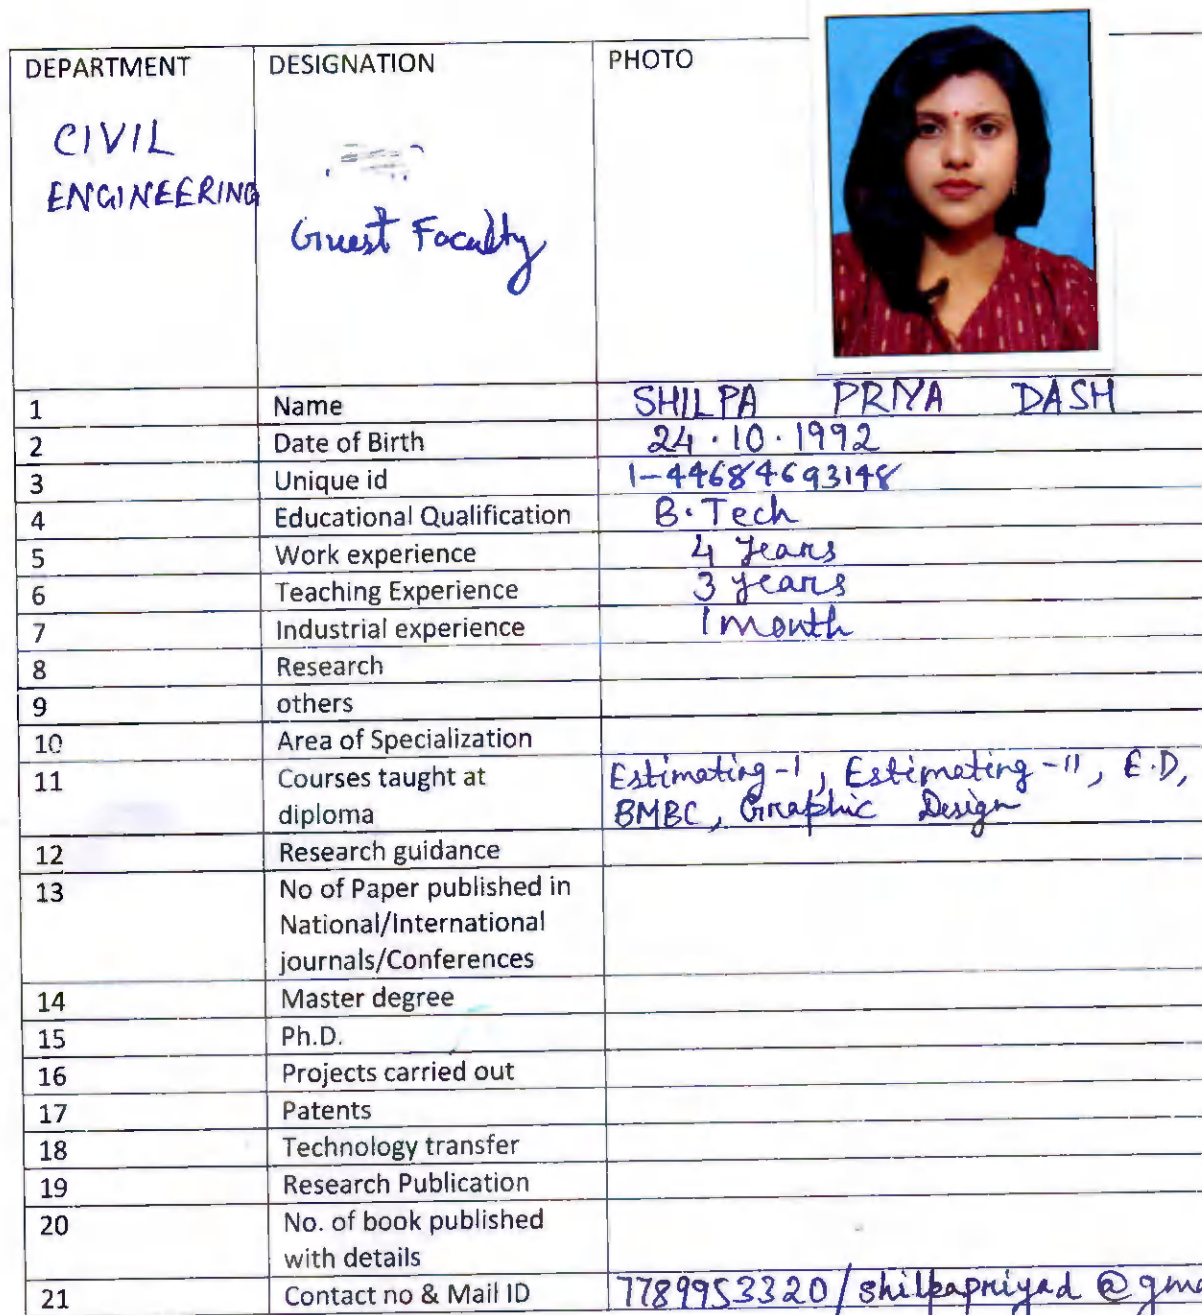 DEPARTMENT DESIGNATION PHOTO
CIVIL
ENGINEERING
Guest Faculty
1 Name SHILPA PRIYA DASH
2 Date of Birth 24.10.1992
3 Unique id 1-44684693148
4 Educational Qualification B.Tech
5 Work experience 4 years
6 Teaching Experience 3 years
7 Industrial experience 1 month
8 Research
9 others
10 Area of Specialization
11 Courses taught at Estimating-I, Estimating-II, E.D,
diploma BMBC, Graphic Design
12 Research guidance
13 No of Paper published in
National/International
journals/Conferences
14 Master degree
15 Ph.D.
16 Projects carried out
17 Patents
18 Technology transfer
19 Research Publication
20 No. of book published
with details
21 Contact no & Mail ID 7789953320/shilpapriyad@gma